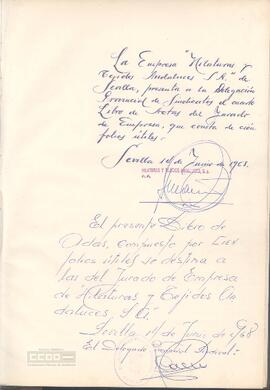 La Empresa "Hilaturas y
Tejidos Andaluces S.A." de
Sevilla, presenta a la Delegación
Provincial de Sindicatos el cuarto
Libro de Actas del Jurado
de Empresa, que consta de cien
folios útiles.-
Sevilla 14 Junio de 1968.
HILATURAS Y TEJIDOS ANDALUCES, S.A.
P.P.
El presente Libro de
Actas, compuesto por cien
folios útiles se destina a
las del Jurado de Empresa
de "Hilaturas, y Tejidos An
daluces, S.A."
Sevilla 14 Junio de 1968
El Delegado Provincial Sindical:-
CCOO